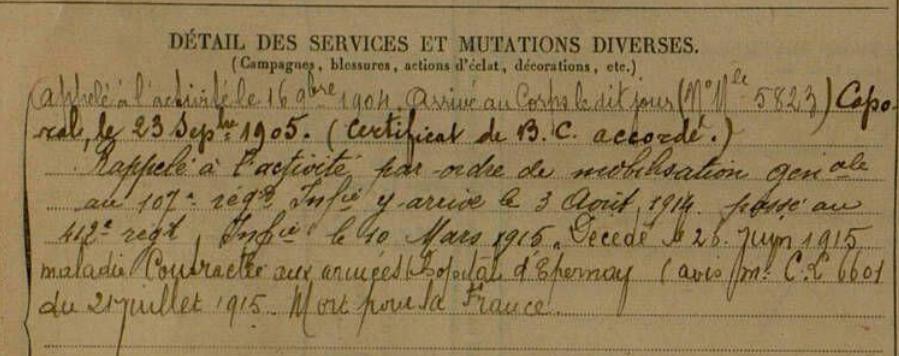 DÉTAIL DES SERVICES ET MUTATIONS DIVERSES.
(Campagnes, blessures, actions d'éclat, décorations, etc.)
Appelé à l'activité le 16 9bre 1904. Arrivé au Corps le dit jour (N° Mle 5823) Capo-
ral, le 23 Sepbre 1905. (Certificat de B. C. accordé.)
Rappelé à l'activité par ordre de mobilisation génale
au 107e régt Infie y arrive le 3 Août 1914. passé au
412e regt, Infie le 10 Mars 1915. Décédé le 26 Juin 1915
maladie Contractée aux armées Hopital d'Epernay (avis m. C.L 6601
du 21 juillet 1915. Mort pour la France.